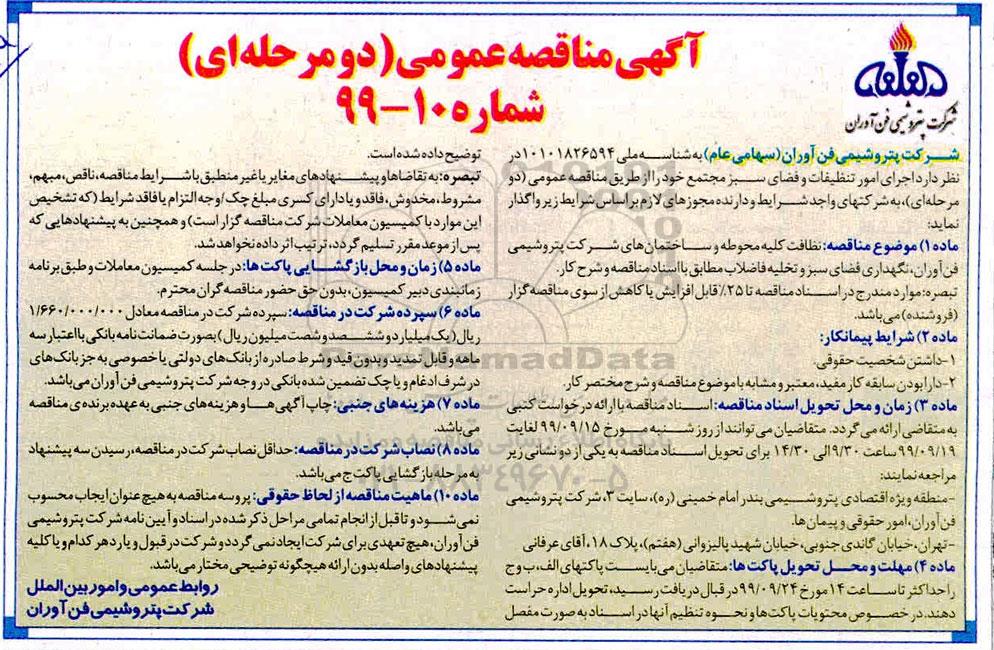 آگهی مناقصه عمومی (دو مرحله‌ای)
شماره ۱۰-۹۹
شرکت پتروشیمی فن‌آوران
شرکت پتروشیمی فن آوران (سهامی عام) به شناسه ملی ۱۰۱۰۱۸۲۶۵۹۴ در
نظر دارد اجرای امور تنظیفات و فضای سبز مجتمع خود را از طریق مناقصه عمومی (دو
مرحله‌ای)، به شرکتهای واجد شرایط و دارنده مجوزهای لازم بر اساس شرایط زیر واگذار
نماید:
ماده ۱) موضوع مناقصه: نظافت کلیه محوطه و ساختمان‌های شرکت پتروشیمی
فن آوران، نگهداری فضای سبز و تخلیه فاضلاب مطابق با اسناد مناقصه و شرح کار.
تبصره: موارد مندرج در اسناد مناقصه تا ۲۵٪ قابل افزایش یا کاهش از سوی مناقصه گزار
(فروشنده) می‌باشد.
ماده ۲) شرایط پیمانکار:
۱-داشتن شخصیت حقوقی.
۲-دارا بودن سابقه کار مفید، معتبر و مشابه با موضوع مناقصه و شرح مختصر کار.
ماده ۳) زمان و محل تحویل اسناد مناقصه: اسناد مناقصه با ارائه درخواست کتبی
به متقاضی ارائه می گردد. متقاضیان می توانند از روز شنبه مورخ ۹۹/۰۹/۱۵ لغایت
۹۹/۰۹/۱۹ ساعت ۹/۳۰ الی ۱۴/۳۰ برای تحویل اسناد مناقصه به یکی از دو نشانی زیر
مراجعه نمایند:
-منطقه ویژه اقتصادی پتروشیمی بندر امام خمینی (ره)، سایت ۳، شرکت پتروشیمی
فن آوران، امور حقوقی و پیمان‌ها.
-تهران، خیابان گاندی جنوبی، خیابان شهید پالیزوانی (هفتم)، پلاک ۱۸، آقای عرفانی
ماده ۴) مهلت و محل تحویل پاکت‌ها: متقاضیان می‌بایست پاکتهای الف، ب و ج
را حداکثر تا ساعت ۱۴ مورخ ۹۹/۰۹/۲۴ در قبال دریافت رسید، تحویل اداره حراست
دهند. در خصوص محتویات پاکت‌ها و نحوه تنظیم آنها در اسناد به صورت مفصل
توضیح داده شده است.
تبصره: به تقاضاها و پیشنهادهای مغایر یا غیر منطبق با شرایط مناقصه، ناقص، مبهم،
مشروط، مخدوش، فاقد و یا دارای کسری مبلغ چک / وجه التزام یا فاقد شرایط (که تشخیص
این موارد با کمیسیون معاملات شرکت مناقصه گزار است) و همچنین به پیشنهادهایی که
پس از موعد مقرر تسلیم گردد، ترتیب اثر داده نخواهد شد.
ماده ۵) زمان و محل بازگشایی پاکت‌ها: در جلسه کمیسیون معاملات و طبق برنامه
زمانبندی دبیر کمیسیون، بدون حق حضور مناقصه گران محترم.
ماده ۶) سپرده شرکت در مناقصه: سپرده شرکت در مناقصه معادل ۱/۶۶۰/۰۰۰/۰۰۰
ریال (یک میلیارد و ششصد و شصت میلیون ریال) بصورت ضمانت نامه بانکی با اعتبار سه
ماهه و قابل تمدید و بدون قید و شرط صادره از بانک‌های دولتی یا خصوصی به جز بانک‌های
در شرف ادغام و یا چک تضمین شده بانکی در وجه شرکت پتروشیمی فن آوران می‌باشد.
ماده ۷) هزینه‌های جنبی: چاپ آگهی‌ها و هزینه‌های جنبی به عهده برنده‌ی مناقصه
می‌باشد.
ماده ۸) نصاب شرکت در مناقصه: حداقل نصاب شرکت در مناقصه، رسیدن سه پیشنهاد
به مرحله بازگشایی پاکت ج می‌باشد.
ماده ۱۰) ماهیت مناقصه از لحاظ حقوقی: پروسه مناقصه به هیچ عنوان ایجاب محسوب
نمی‌شود و تا قبل از انجام تمامی مراحل ذکر شده در اسناد و آیین نامه شرکت پتروشیمی
فن آوران، هیچ تعهدی برای شرکت ایجاد نمی گردد و شرکت در قبول و یا رد هر کدام و یا کلیه
پیشنهادهای واصله بدون ارائه هیچگونه توضیحی مختار می‌باشد.
روابط عمومی و امور بین الملل
شرکت پتروشیمی فن آوران
ParsNamadData
۰۲۱-۸۸۳۴۹۶۷۰-۵